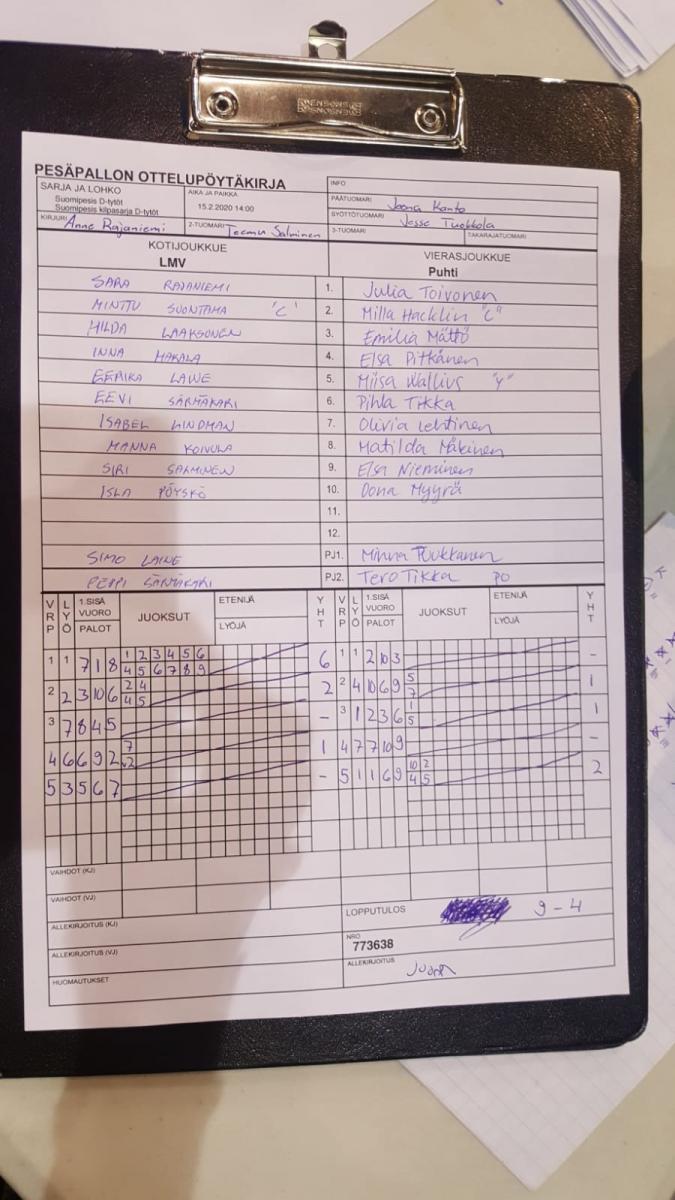 PESÄPALLON OTTELUPÖYTÄKIRJA
SARJA JA LOHKO
Suomipesis D-tytöt
Suomipesis kilpasarja D-tytöt
AIKA JA PAIKKA
15.2.2020 14:00
INFO
PÄÄTUOMARI Joona Kanto
SYÖTTÖTUOMARI Jesse Tuokkola
KIRJURI Anne Rajaniemi
2-TUOMARI Teemu Salminen
3-TUOMARI
TAKARAJATUOMARI
KOTIJOUKKUE
LMV
VIERASJOUKKUE
Puhti
SARA RAJANIEMI 1. Julia Toivonen
MINTTU SUONTAMA "C" 2. Milla Hacklin "C"
HILDA LAAKSONEN 3. Emilia Mättö
INNA MAKALA 4. Elsa Pitkänen
EERIKA LAINE 5. Miisa Wallius "Y"
EEVI SÄRMÄKARI 6. Pihla Tikka
ISABEL LINDMAN 7. Olivia Lehtinen
MANNA KOIVULA 8. Matilda Mäkinen
SIRI SALMINEN 9. Elsa Nieminen
ISLA PÖYSKÖ 10. Oona Myyrä
11.
12.
SIMO LAINE PJ1. Minna Tuukkanen
PEPPI SÄRMÄKARI PJ2. Tero Tikka PO
VRP LYÖ 1.SISÄ VUORO PALOT JUOKSUT ETENIJÄ LYÖJÄ YHT VRP LYÖ 1.SISÄ VUORO PALOT JUOKSUT ETENIJÄ LYÖJÄ YHT
1 2 3 4 5 6
1 1 7 1 8 4 5 6 7 8 9 6 1 1 2 10 3 -
2 4 5
2 2 3 10 6 4 5 2 2 4 10 6 9 7 1
1
3 7 8 4 5 - 3 1 2 3 6 5 1
7
4 6 6 9 2 2 1 4 7 7 10 9 -
10 2
5 3 5 6 7 - 5 1 1 6 9 4 5 2
VAIHDOT (KJ)
VAIHDOT (VJ)
ALLEKIRJOITUS (KJ)
LOPPUTULOS 9 - 4
ALLEKIRJOITUS (VJ)
NRO
773638
HUOMAUTUKSET
ALLEKIRJOITUS